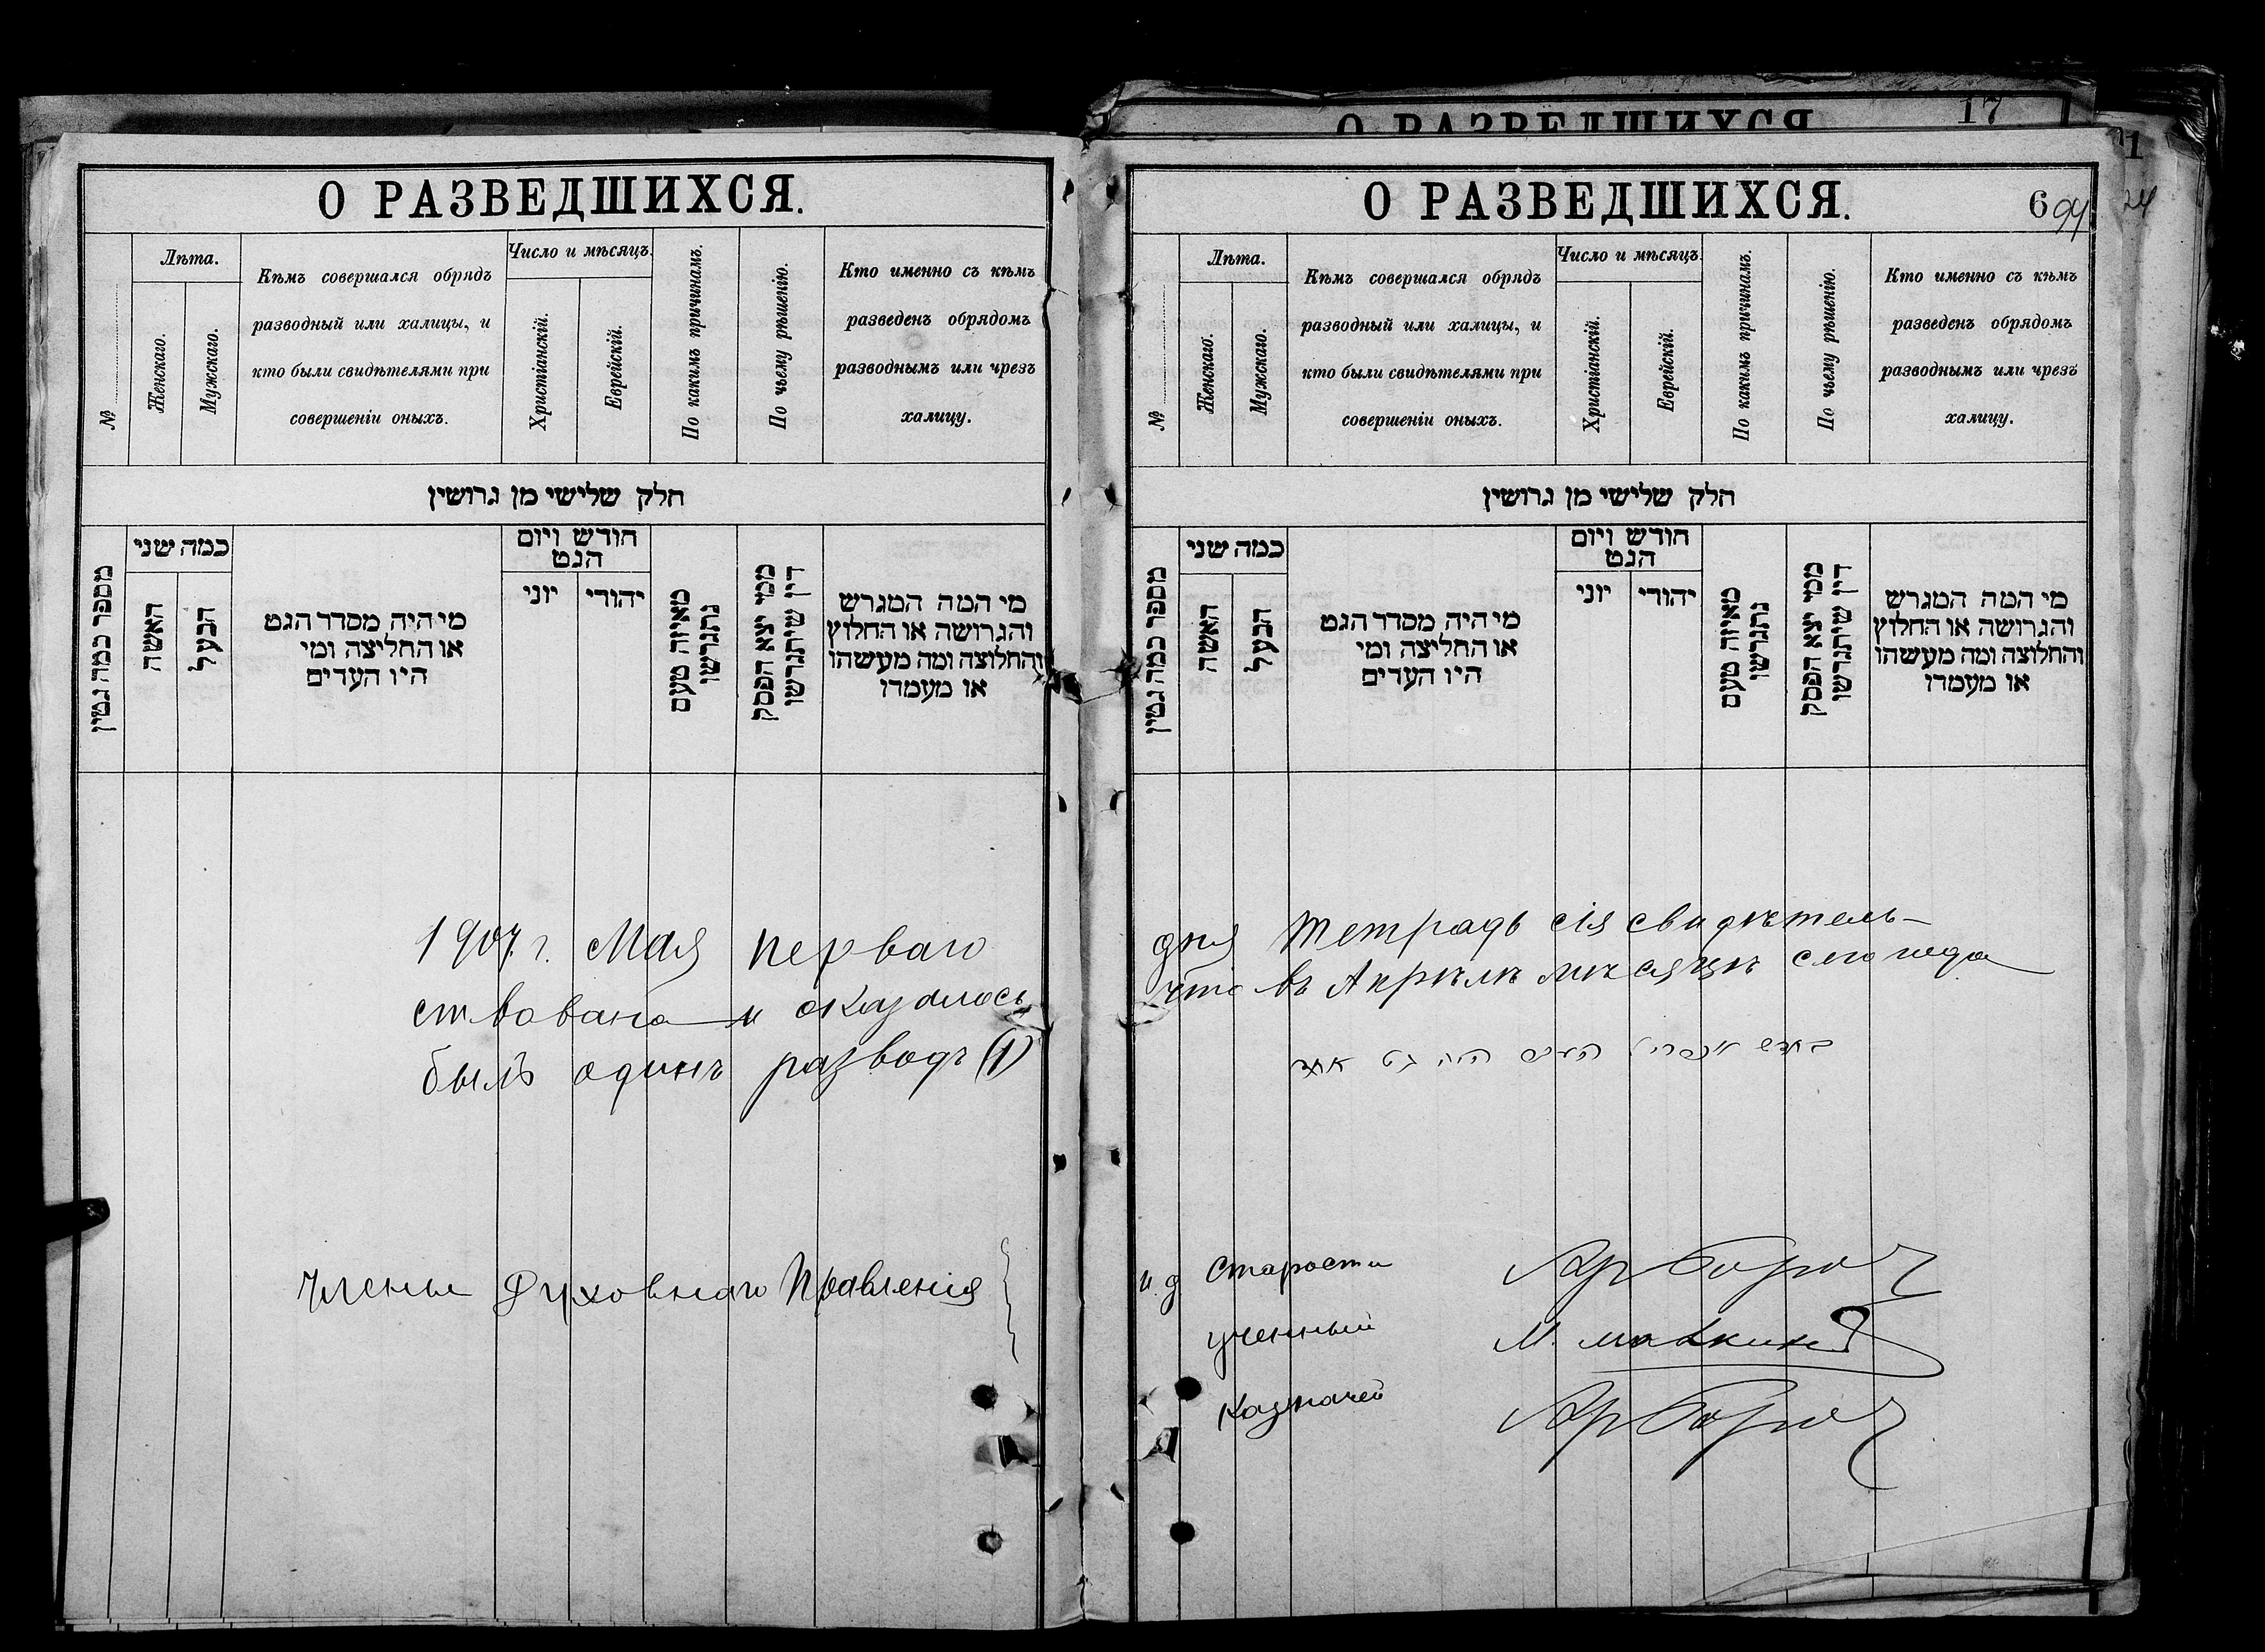 О РАЗВЕДШИХСЯ.
№
Лѣта.
Женскаго.
Мужскаго.
Кѣмъ совершался обрядъ
разводный или халицы, и
кто были свидѣтелями при
совершеніи оныхъ.
Число и мѣсяцъ.
Христіанскій.
Еврейскій.
По какимъ причинамъ.
По чьему рѣшенію.
Кто именно съ кѣмъ
разведенъ обрядомъ
разводнымъ или чрезъ
халицу.
חלק שלישי מן גרושין
מספר כמה גטין
כמה שני
האשה
הבעל
מי היה מסדר הגט
או החליצה ומי
היו העדים
חודש ויום
הגט
יוני
יהודי
מאיזה טעם
נתגרשו
ממי יצא הפסק
דין שיתגרשו
מי המה המגרש
והגרושה או החלוץ
והחלוצה ומה מעשהו
או מעמדו
1907 г. Мая перваго
ствована и оказалось
былъ одинъ разводъ (1)
Члены Духовнаго Правленія
О РАЗВЕДШИХСЯ
17
О РАЗВЕДШИХСЯ.
6 94
24
№
Лѣта.
Женскаго.
Мужскаго.
Кѣмъ совершался обрядъ
разводный или халицы, и
кто были свидѣтелями при
совершеніи оныхъ.
Число и мѣсяцъ.
Христіанскій.
Еврейскій.
По какимъ причинамъ.
По чьему рѣшенію.
Кто именно съ кѣмъ
разведенъ обрядомъ
разводнымъ или чрезъ
халицу.
חלק שלישי מן גרושין
מספר כמה גטין
כמה שני
האשה
הבעל
מי היה מסדר הגט
או החליצה ומי
היו העדים
חודש ויום
הגט
יוני
יהודי
מאיזה טעם
נתגרשו
ממי יצא הפסק
דין שיתגרשו
מי המה המגרש
והגרושה או החלוץ
והחלוצה ומה מעשהו
או מעמדו
дня тетрадь сія свидѣтель-
что въ Апрѣлѣ мѣсяцѣ сего года
בחדש אפריל היה גט אחד
и. д Старосты
ученый М.
Казначей